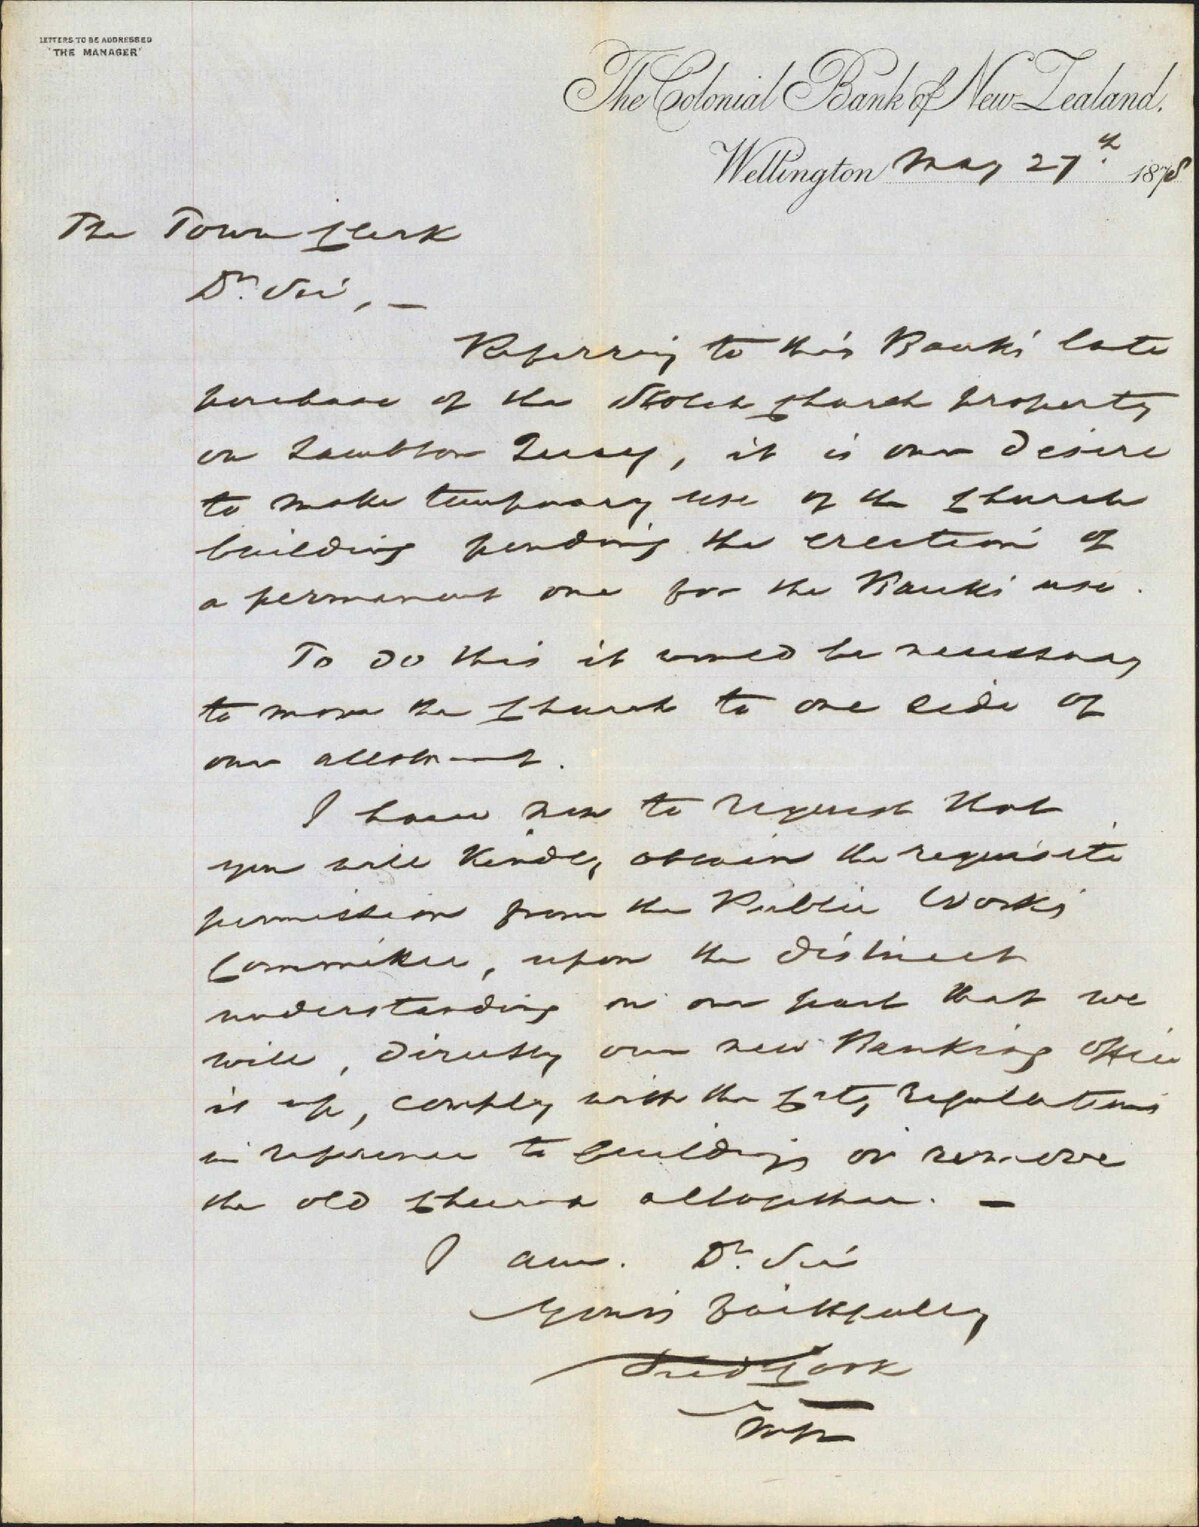 LETTERS TO BE ADDRESSED
"THE MANAGER"
The Colonial Bank of New Zealand.
Wellington May 27th. 1878
The Town Clerk
Dr. Sir, —
Referring to this Bank's late
purchase of the Scotch Church property
on Lambton Quay, it is our desire
to make temporary use of the Church
building pending the erection of
a permanent one for the Bank's use.
To do this it would be necessary
to move the Church to one side of
our allotment.
I have now to request that
you will kindly obtain the requisite
permission from the Public Works
Committee, upon the distinct
understanding on our part that we
will, directly our new Banking Office
is up, comply with the City regulations
in reference to buildings or remove
the old Church altogether. —
I am. Dr. Sir
Yours faithfully
Fred Cook
Mgr